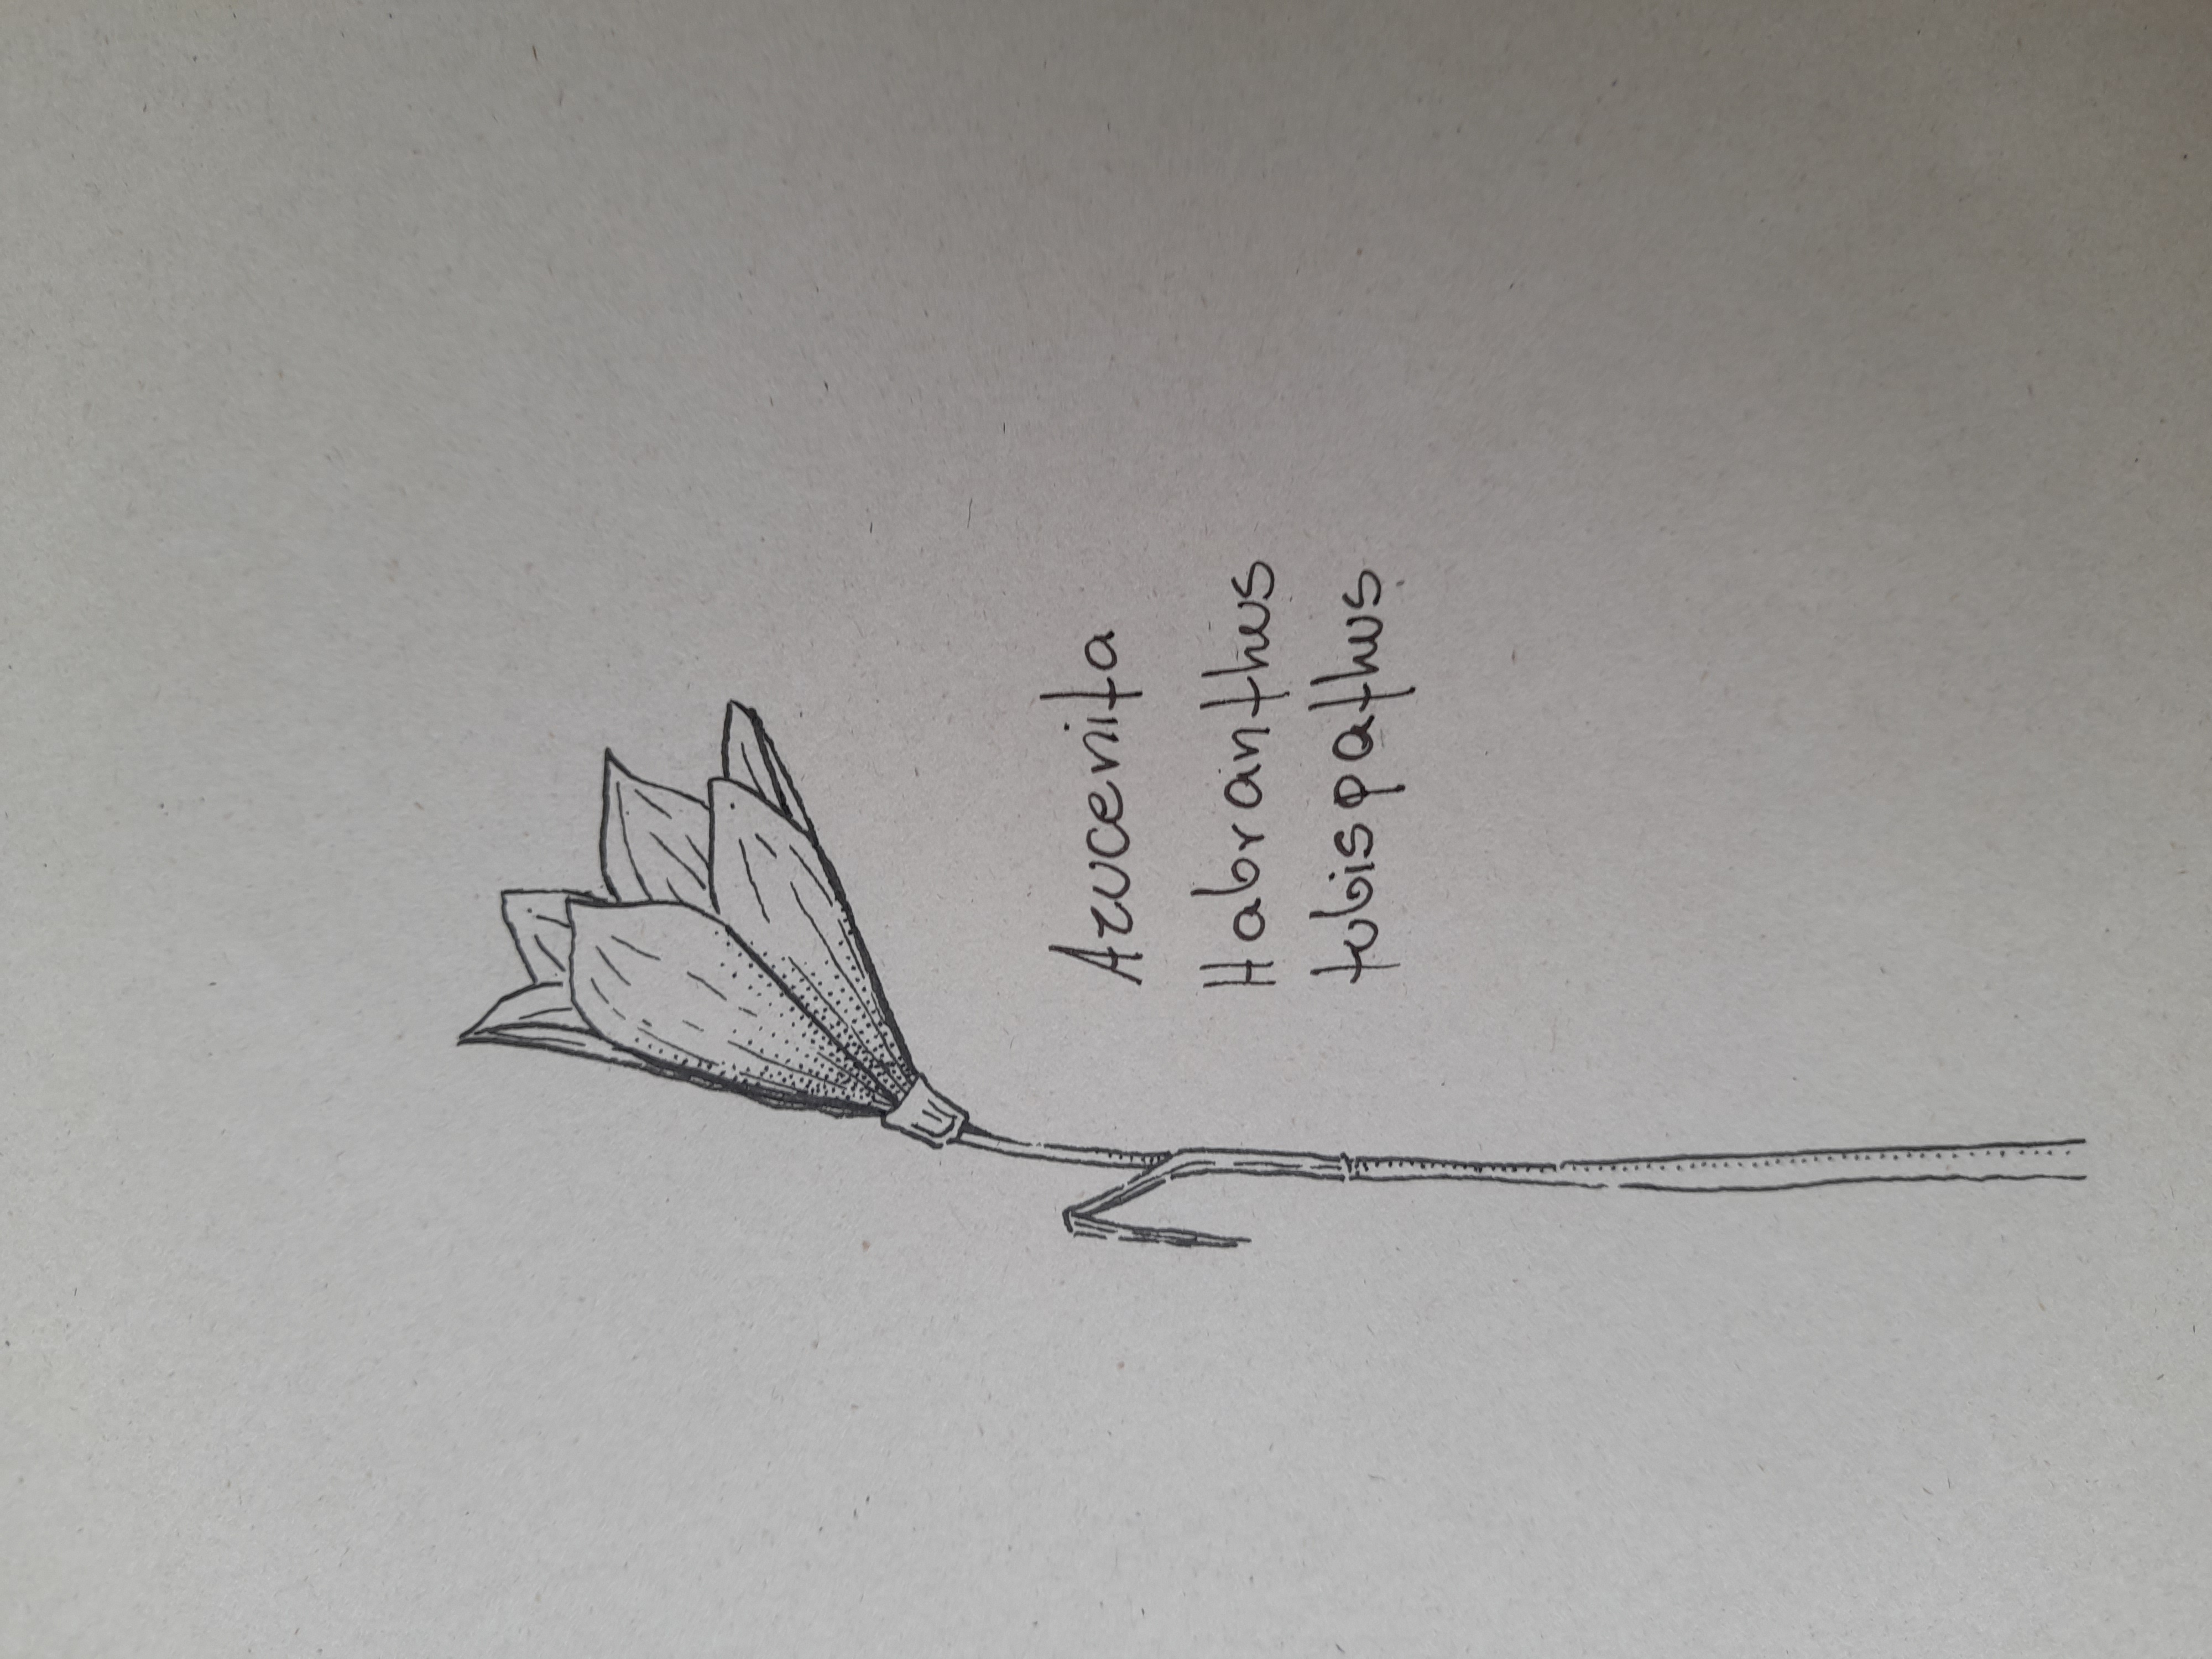 Azucenita
Habranthus
tubispathus